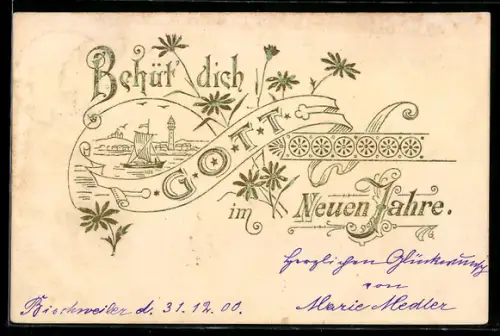 Behüt' dich
G·O·T·T·
im Neuen Jahre.
Herzlichen Glückwunsch
von
Marie Medler
Bischweiler d. 31.12.00.